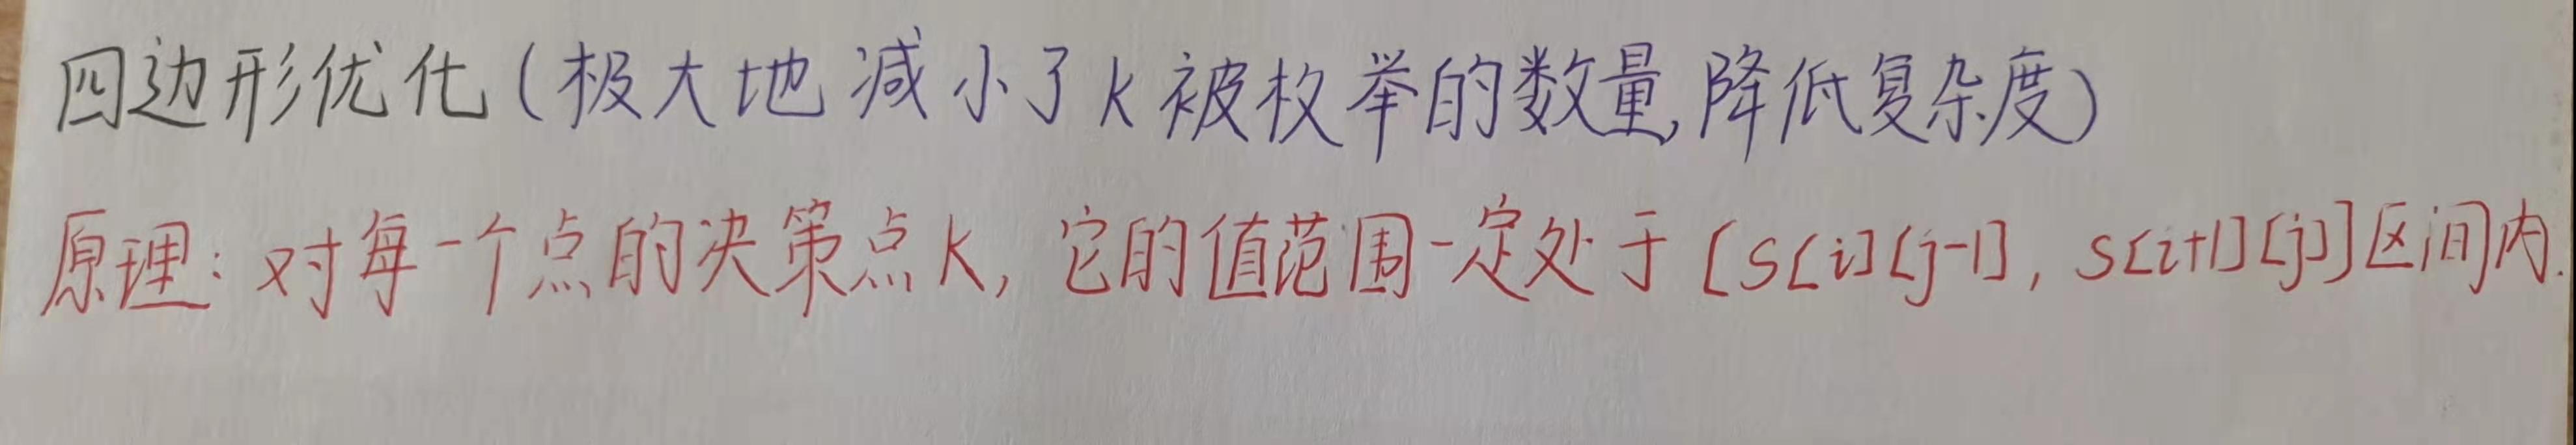 四边形优化(极大地减小了k被枚举的数量,降低复杂度)
原理:对每一个点的决策点K,它的值范围一定处于[S[i][j-1],S[i+1][j]]区间内.